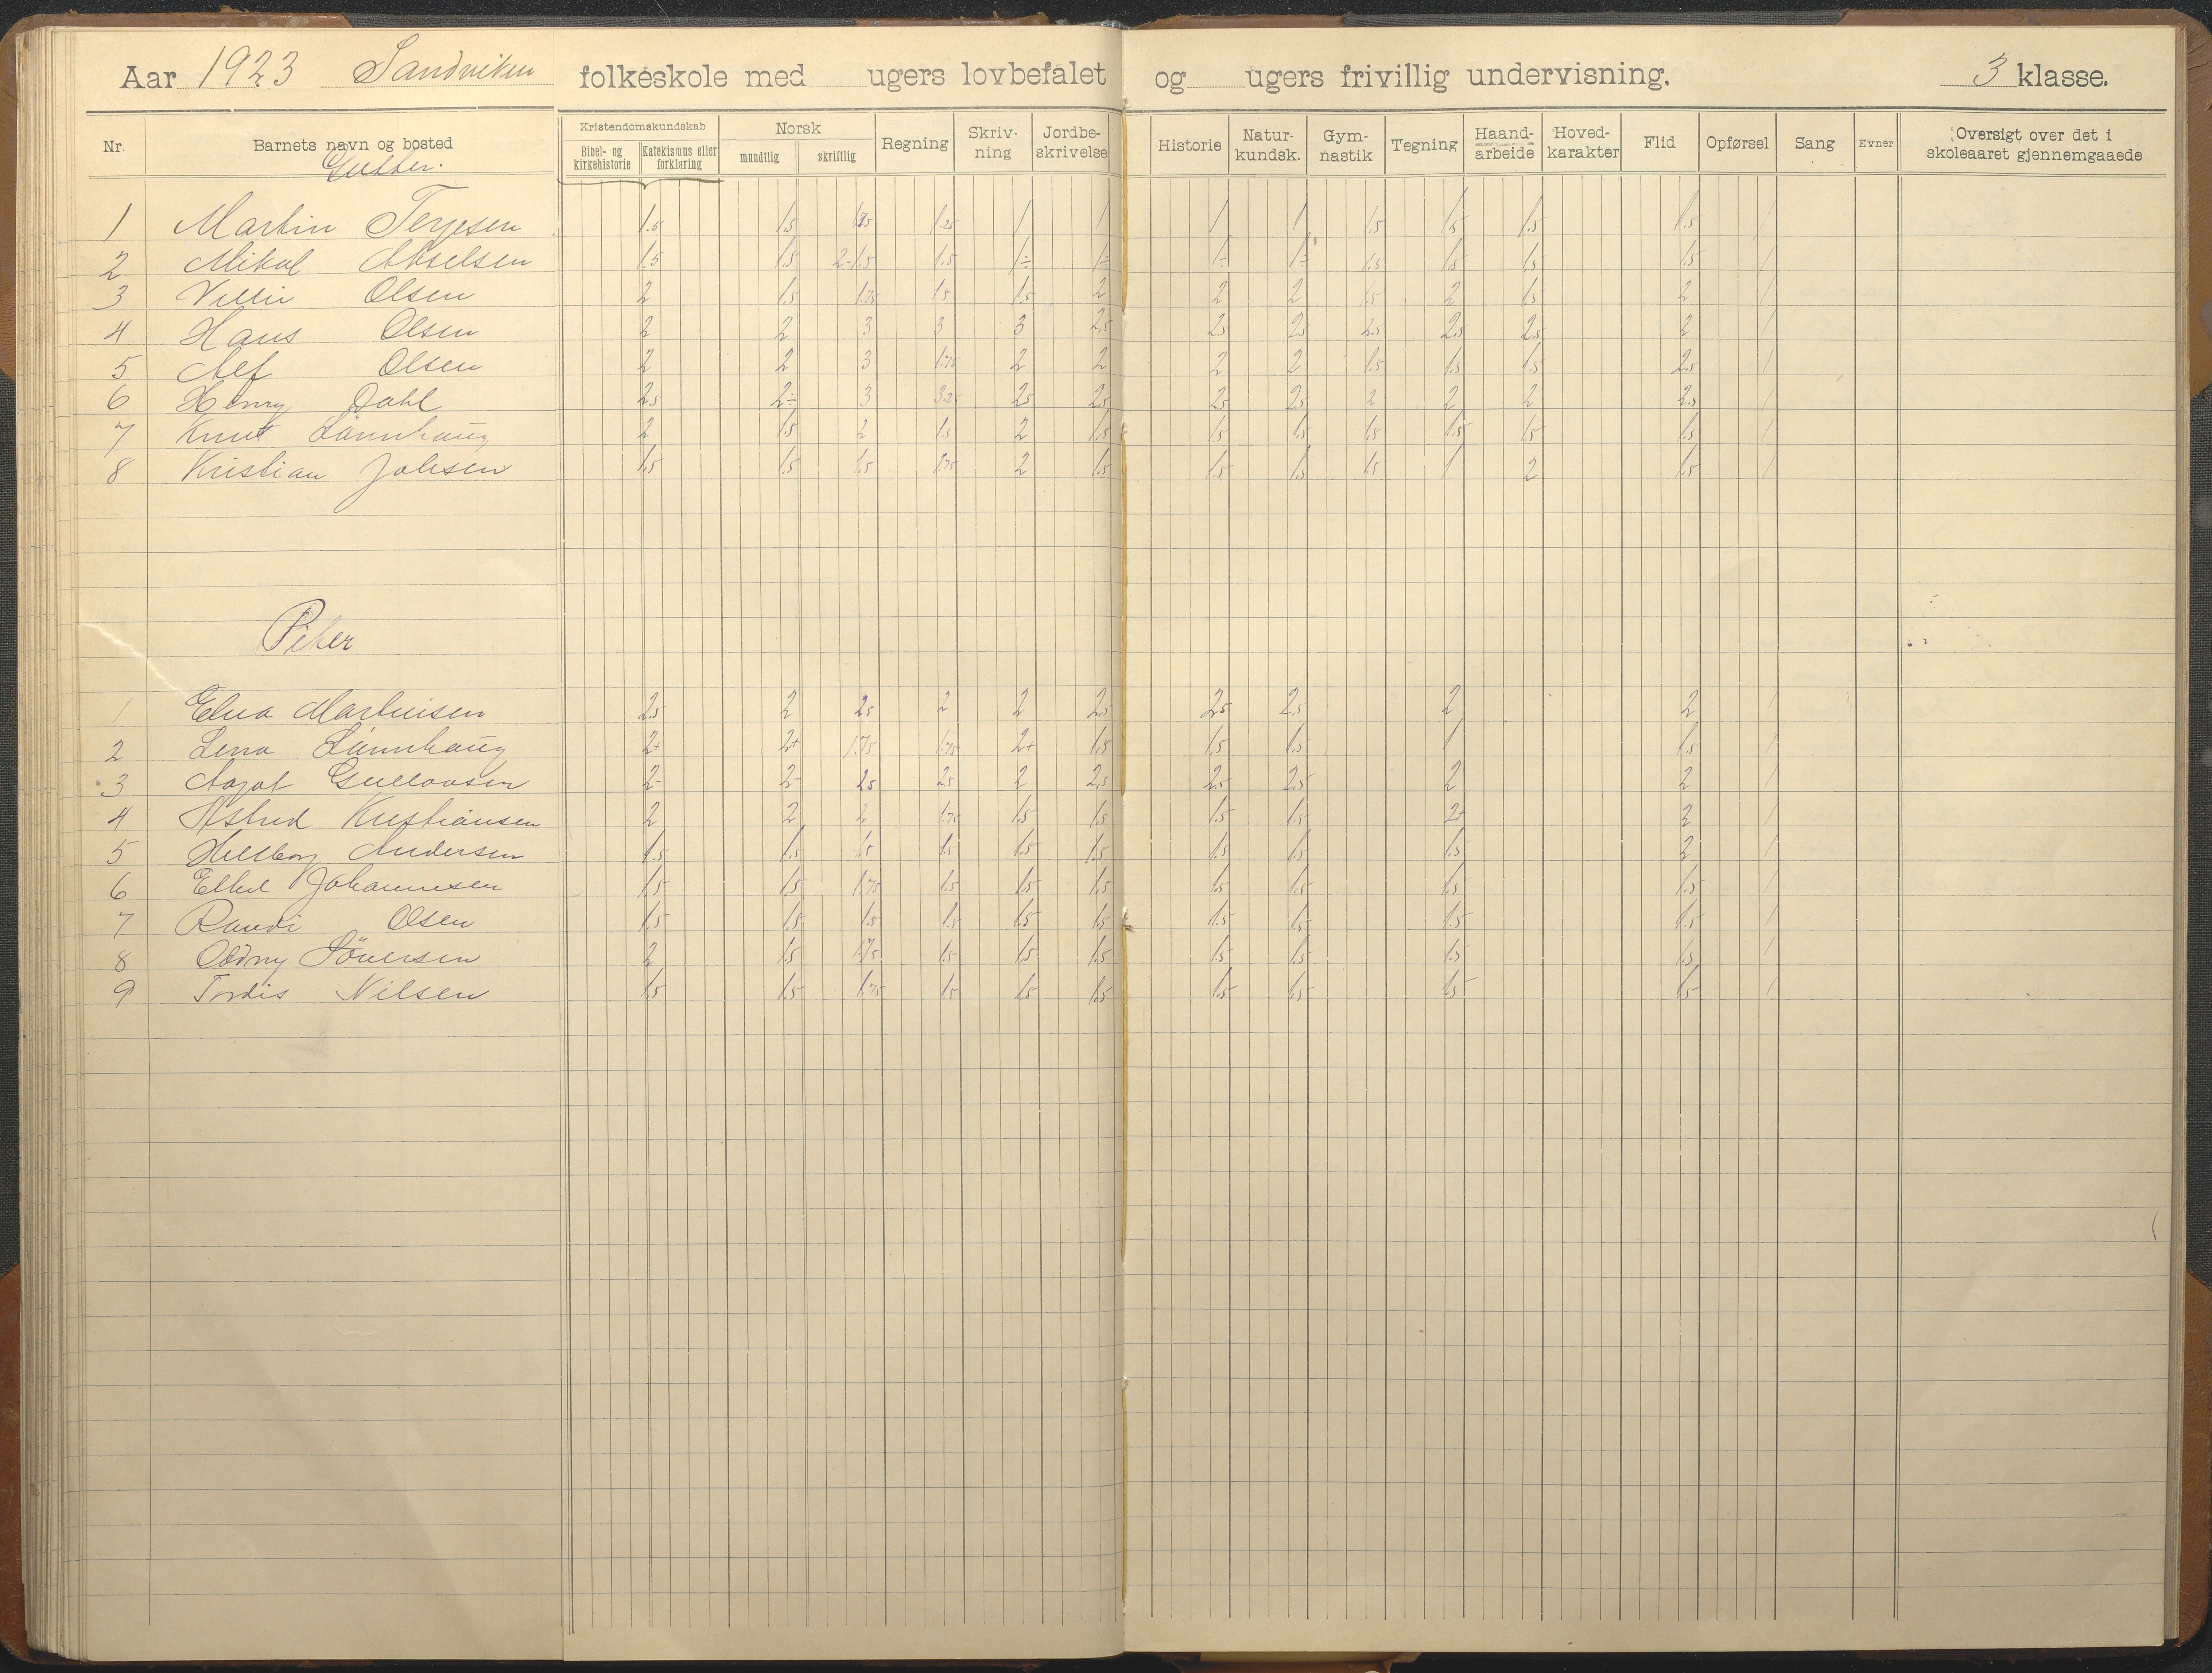 Aar 1923 Sandviken folkeskole med ugers lovbefalet og ugers frivillig undervisning. 3 klasse.
Nr. Barnets navn og bosted Kristendomskundskab Bibel- og kirkehistorie Katekismus eller forklaring Norsk mundtlig skriftlig Regning Skriv-ning Jordbe-skrivelse Historie Natur-kundsk. Gym-nastik Tegning Haand-arbeide Hoved-karakter Flid Opførsel Sang Evner Oversigt over det i skoleaaret gjennemgaaede
Gutter.
1 Martin Terjesen 1.5 1.5 1.25 1 1 1 1 1.5 1.5 1.5 1.5 1
2 Mikal Akselsen 1.5 1.5 2-1.5 1.5 1÷ 1÷ 1÷ 1÷ 1.5 1.5 1.5 1.5 1
3 Villi Olsen 2 1.5 1.75 1.5 1.5 2 2 2 1.5 2 1.5 2 1
4 Hans Olsen 2 2 3 3 3 2.5 2.5 2.5 2.5 2.5 2.5 2 1
5 Alf Olsen 2 2 3 1.75 2 2 2 2 1.5 1.5 1.5 2.5 1
6 Henry Dahl 2.5 2÷ 3 3.25 2.5 2.5 2.5 2.5 2 2 2 2.5 1
7 Knut Lånnhaug 2 1.5 2 1.5 2 1.5 1.5 1.5 1.5 1.5 1.5 1.5 1
8 Kristian Johsen 1.5 1.5 1.5 1.75 2 1.5 1.5 1.5 1.5 1 2 1.5 1
Piker
1 Elna Martinisen 2.5 2 2.5 2 2 2.5 2.5 2.5 2 2 1
2 Lena Lånnhaug 2+ 2+ 1.75 1.75 2+ 1.5 1.5 1.5 1 1.5 1
3 Aagot Gullovsen 2- 2- 2.5 2.5 2 2.5 2.5 2.5 2 2 1
4 Astrid Kristiansen 2 2 2 1.75 1.5 1.5 1.5 1.5 2+ 2 1
5 Hilborg Andersen 1.5 1.5 1.5 1.5 1.5 1.5 1.5 1.5 1.5 2 1
6 Ethel Johannesen 1.5 1.5 1.75 1.5 1.5 1.5 1.5 1.5 1.5 1.5 1
7 Randi Olsen 1.5 1.5 1.5 1.5 1.5 1.5 1.5 1.5 1.5 1.5 1
8 Oddny Söversen 2 1.5 1.75 1.5 1.5 1.5 1.5 1.5 1.5 1.5 1
9 Tordis Nilsen 1.5 1.5 1.75 1.5 1.5 1.5 1.5 1.5 1.5 1.5 1